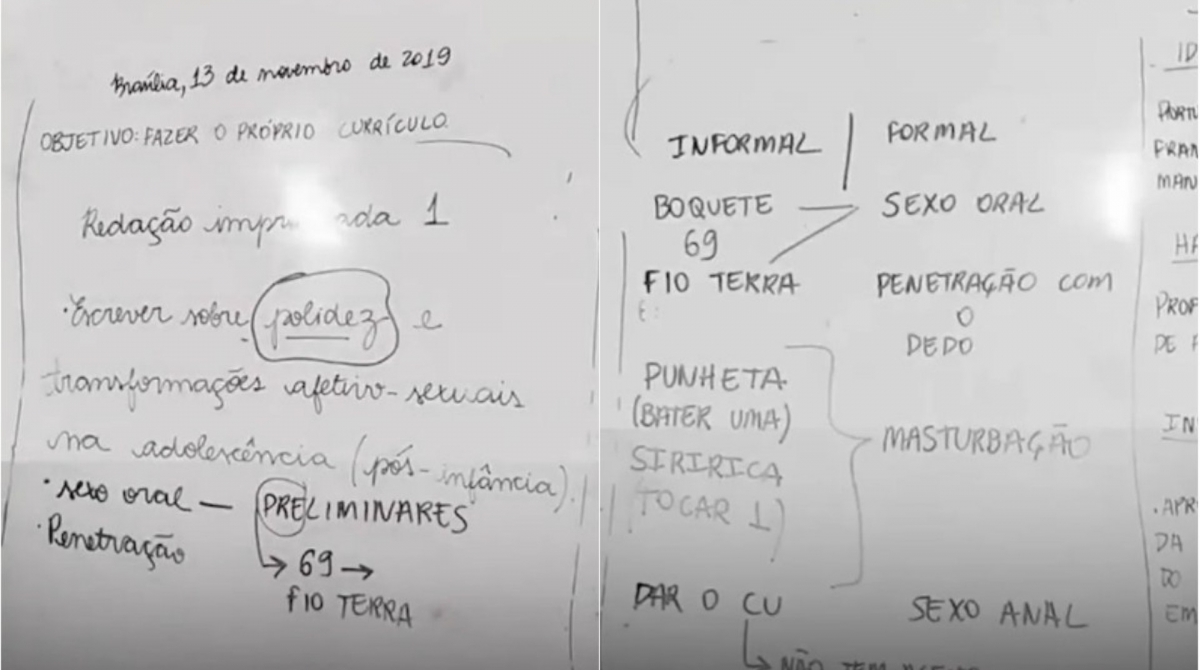 Brasília, 13 de novembro de 2019
OBJETIVO: FAZER O PRÓPRIO CURRÍCULO
Redação 1
• Escrever sobre polidez e
transformações afetivo-sexuais
na adolescência (pós-infância).
• sexo oral — PRELIMINARES
• Penetração
→ 69 →
FIO TERRA
INFORMAL | FORMAL
BOQUETE — SEXO ORAL
69
FIO TERRA PENETRAÇÃO COM
O
DEDO
E:
PUNHETA
(BATER UMA)
MASTURBAÇÃO
SIRIRICA
TOCAR 1)
DAR O CU SEXO ANAL
↳ NÃO TEM
ID
PORTU
FRAN
MAN
HA
PROF
DE F
IN
. APR
DA
DO
EM